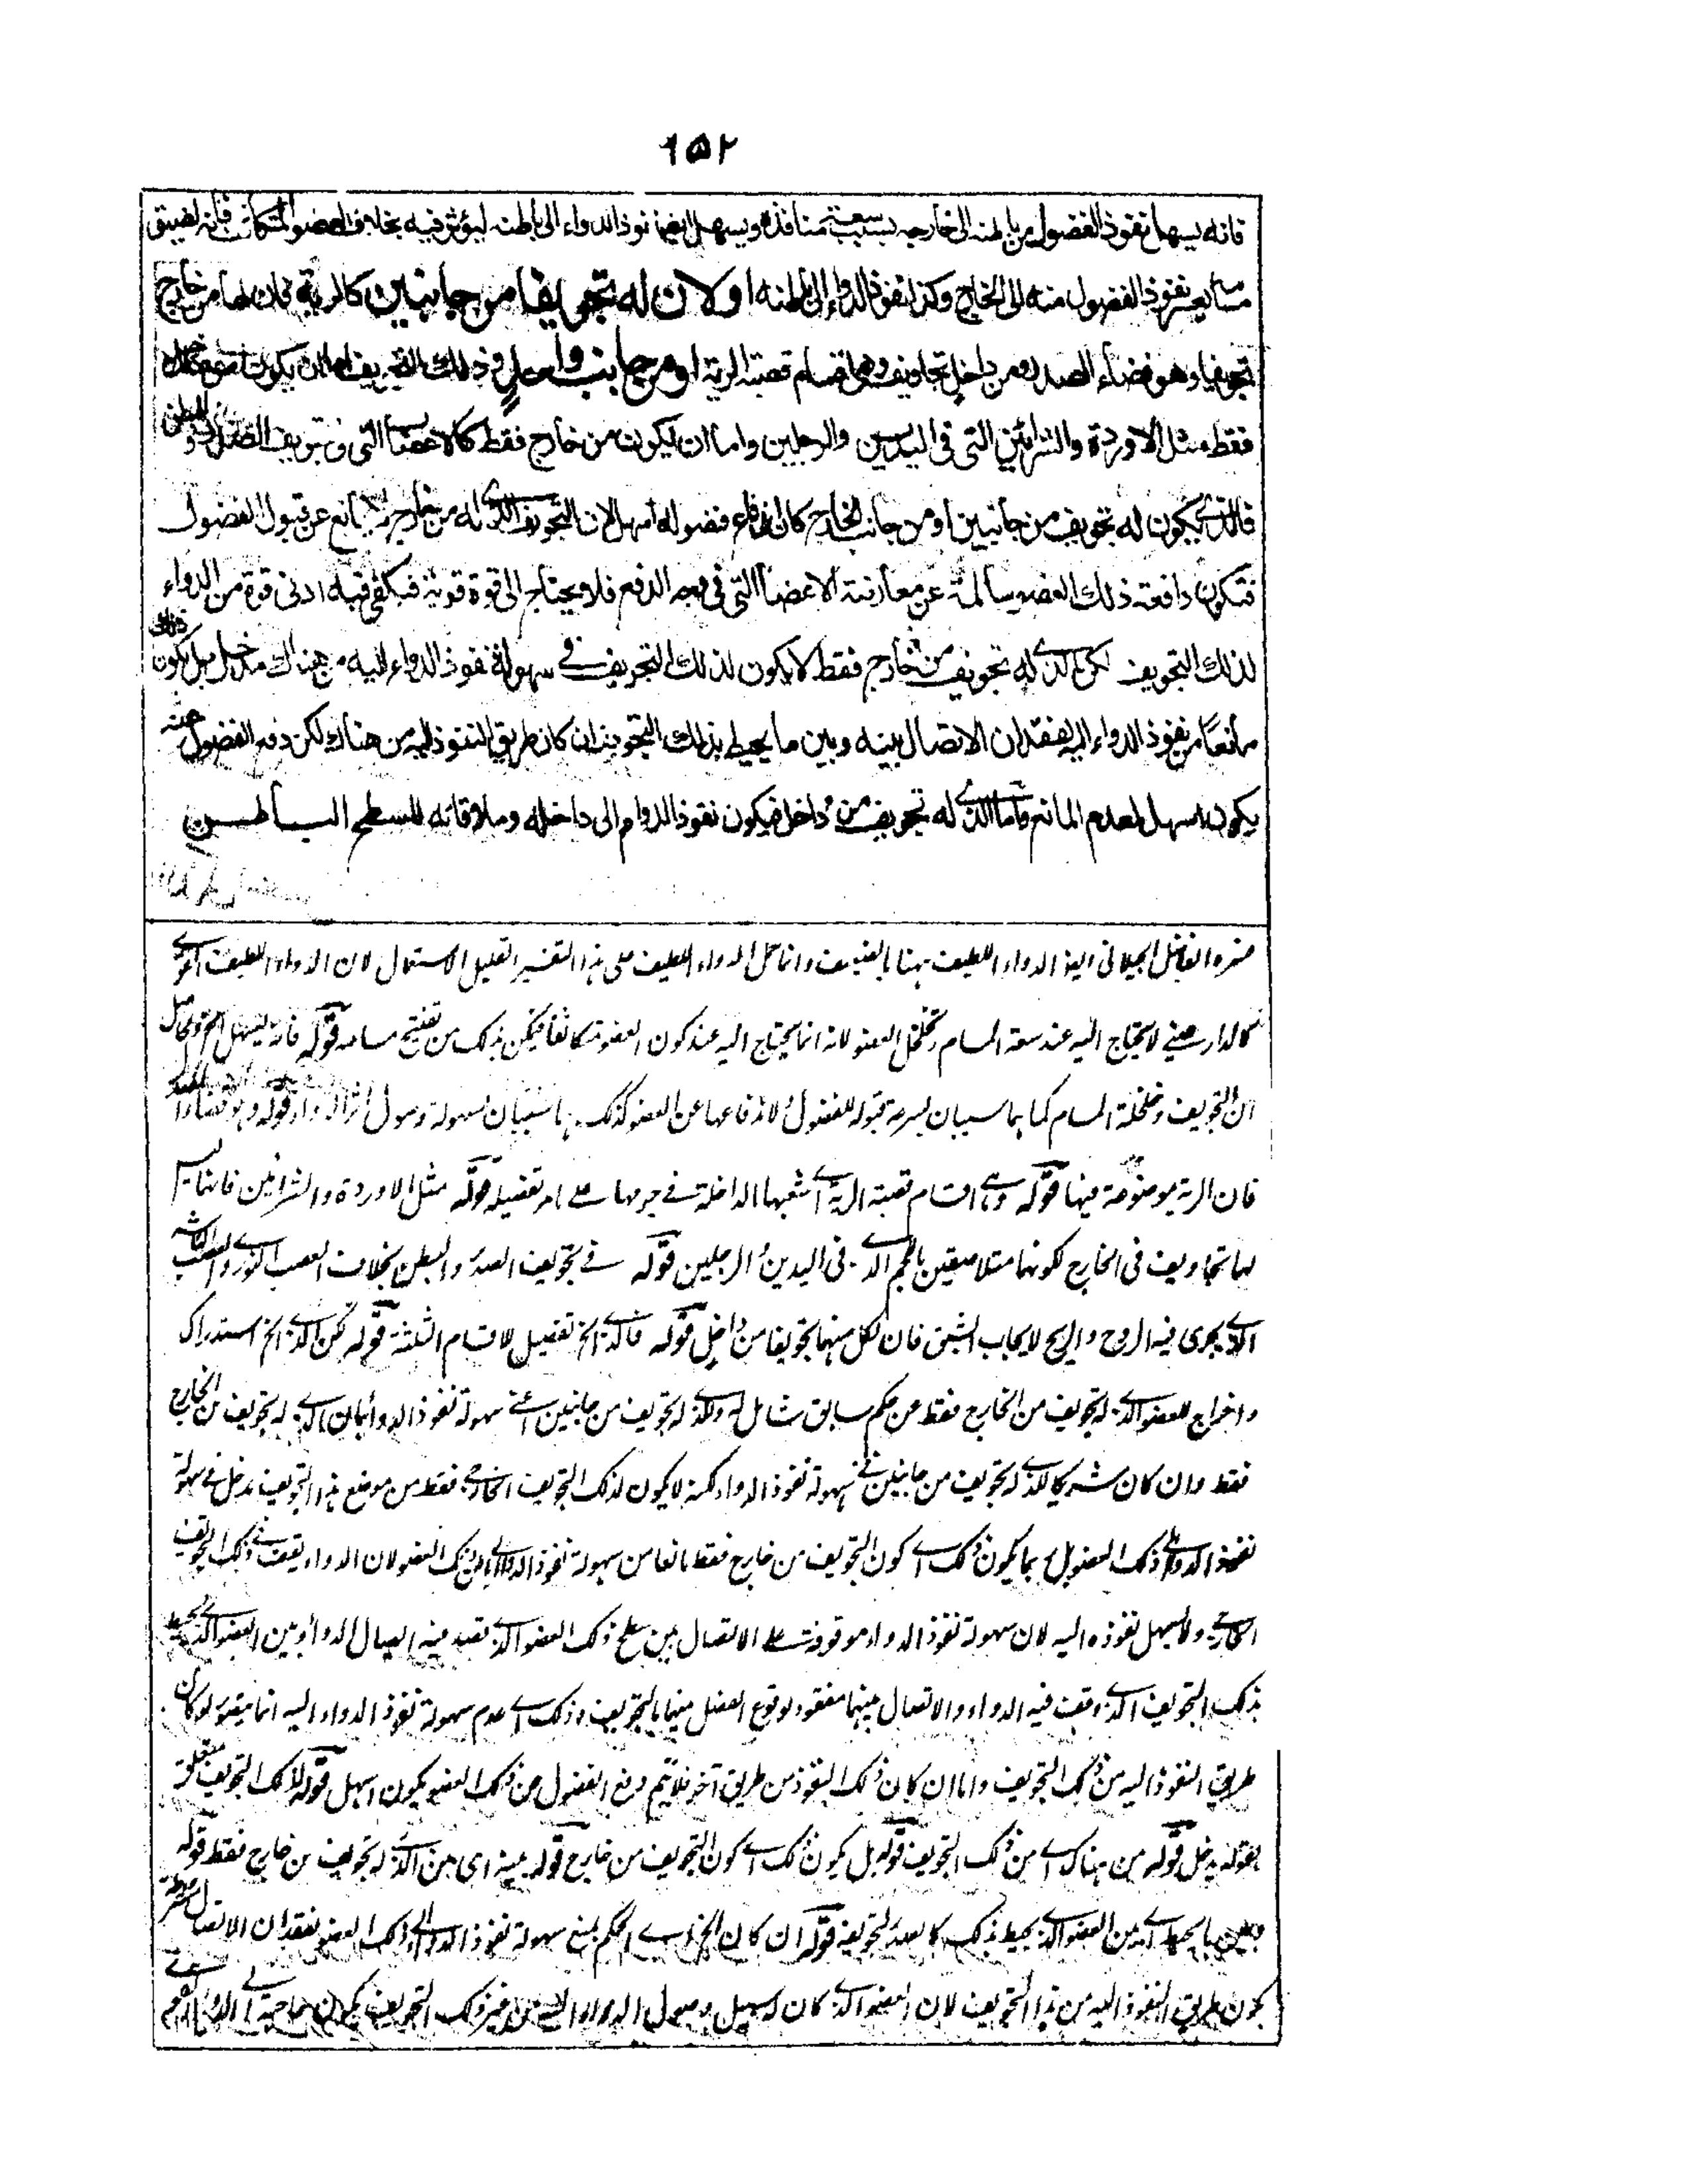 ١٥٢
فانه يسهل نفوذ الفضول من باطنه الى خارجه بسبب سعة منافذه ويسهل ايضا نفوذ الدواء الى باطنه ليؤثر فيه بخلاف العضو المتكاثف فانه لضيق
مسامه يعسر نفوذ الفضول منه الى الخارج وكذا نفوذ الدواء الى باطنه او لان له تجويفا من جانبين كالرية فان لها من خارج
تجويفا وهو فضاء الصدر ومن داخل تجاويف وهى اقسام قصبة الرية او من جانب واحد وذلك التجويف اما ان يكون من داخله
فقط مثل الاوردة والشرائين التى فى اليدين والرجلين واما ان يكون من خارج فقط كالاعضاء التى فى تجويف الصدر والبطن
فالذى يكون له تجويف من جانبين او من جانب الخارج كان اندفاع فضوله اسهل لان التجويف الذى له من خارج لا يمانع عن قبول الفضول
فتكون دافعة ذلك العضو سالمة عن معارضة الاعضاء التى فى وجه الدفع فلا يحتاج الى قوة قوية فيكفى فيه ادنى قوة من الدواء
لذلك التجويف لكن الذى له تجويف من خارج فقط لا يكون لذلك التجويف فى سهولة نفوذ الدواء اليه من هناك مدخل بل يكون
مانعا من نفوذ الدواء اليه لفقدان الاتصال بينه وبين ما يحيط بذلك التجويف ان كان طريق النفوذ اليه من هناك لكن دفع الفضول عنه
يكون اسهل لعدم المانع واما الذى له تجويف من داخل فيكون نفوذ الدواء الى داخله وملاقاته للسطح الباطن
فسره الفاضل الجيلانى الدواء اللطيف ههنا بالضعيف وانما حمل الدواء اللطيف على هذا التفسير القليل الاستعمال لان الدواء اللطيف
كالدارصينى لا يحتاج اليه عند سعة المسام وتخلخل العضو لانه انما يحتاج اليه عند كون العضو متكاثفا فيمكن بذلك من تفتيح مسامه قوله فانه يسهل الخ وحاصل
ان التجويف وخلخلة المسام كما هما سببان لسرعة قبوله للفضول ولاندفاعها عن العضو كذلك هما سببان لسهولة وصول اثر الدواء قوله وهو فضاء الصدر
فان الرية موضوعة فيها قوله وهى اقسام قصبة الرية اى شعبها الداخلة فى جرمها على ما مر تفصيله قوله مثل الاوردة والشرائين فانها ليس
لها تجاويف فى الخارج لكونها متلاصقين باللحم الذى فى اليدين والرجلين قوله فى تجويف الصدر والبطن بخلاف العصب
الذى يجرى فيه الروح والريح لايجاب الشبق فان لكل منها تجويفا من داخل قوله فالذى الخ تفصيل لاقسام الثلثة قوله لكن الذى الخ استدراك
واخراج للعضو الذى له تجويف من الخارج فقط عن حكم سابق شامل له وللذى له تجويف من جانبين اعنى سهولة نفوذ الدواء بان الذى له تجويف من الخارج
فقط وان كان شريكا للذى له تجويف من جانبين فى سهولة نفوذ الدواء لكنه لا يكون لذلك التجويف الخارجى فقط من موضع هذا التجويف مدخل فى سهولة
نفوذ الدواء الى ذلك العضو بل ربما يكون ذلك اى كون التجويف من خارج فقط مانعا من سهولة نفوذ الدواء الى باطن ذلك العضو لان الدواء يقف فى ذلك التجويف
الخارجى ولا يسهل نفوذه اليه لان سهولة نفوذ الدواء موقوفة على الاتصال بين سطح ذلك العضو الذى نقصد فيه ايصال الدواء وبين العضو الذى يحيط
بذلك التجويف الذى وقف فيه الدواء والاتصال بينهما مفقود لوقوع الفصل بينهما بالتجويف وذلك اى عدم سهولة نفوذ الدواء اليه انما يتصور لو كان
طريق النفوذ اليه من ذلك التجويف واما ان كان ذلك النفوذ من طريق آخر فلا ثم دفع الفضول عن ذلك العضو يكون اسهل قوله لذلك التجويف متعلق
بقوله مدخل قوله من هناك اى من ذلك التجويف قوله بل يكون ذلك اى كون التجويف من خارج قوله بينه اى بين الذى له تجويف من خارج فقط قوله
وبين ما يحيط اى بين العضو الذى يحيط بذلك كالصدر لتجويفه قوله ان كان الخ اى الحكم بمنع سهولة نفوذ الدواء الى ذلك العضو لفقدان الاتصال مشروط
بكون طريق النفوذ اليه من هذا التجويف لان العضو الذى كان له سبيل وصول الدواء اليه من غير ذلك التجويف يكون